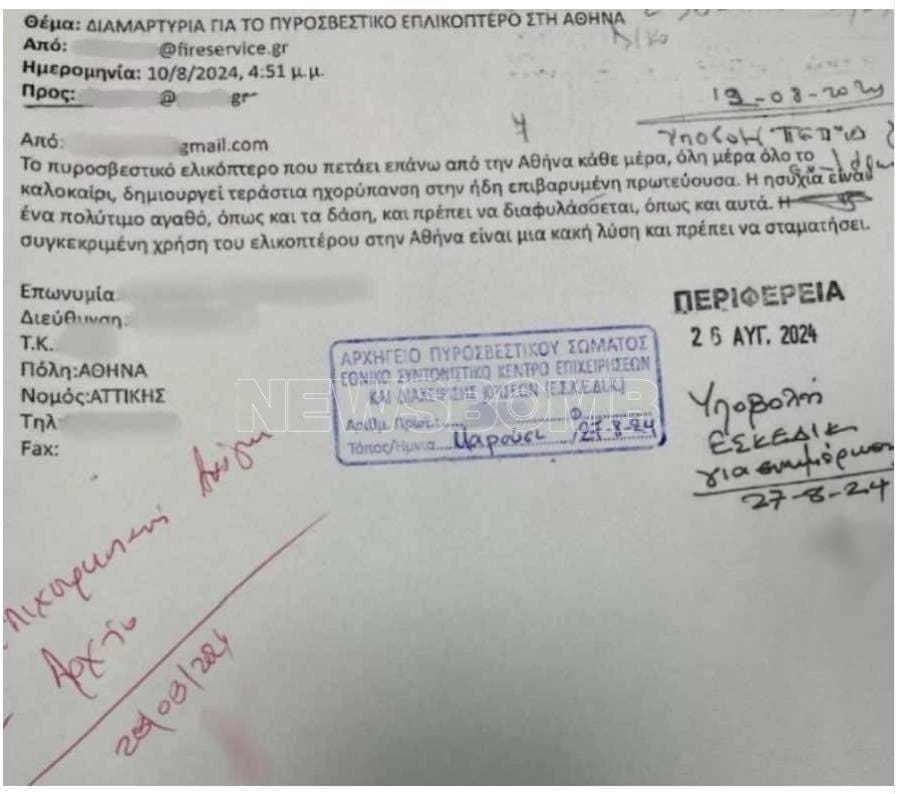 Θέμα: ΔΙΑΜΑΡΤΥΡΙΑ ΓΙΑ ΤΟ ΠΥΡΟΣΒΕΣΤΙΚΟ ΕΠΛΙΚΟΠΤΕΡΟ ΣΤΗ ΑΘΗΝΑ
Από: @fireservice.gr
Ημερομηνία: 10/8/2024, 4:51 μ.μ.
Προς: @ gr
19-08-2024
Από: gmail.com
Το πυροσβεστικό ελικόπτερο που πετάει επάνω από την Αθήνα κάθε μέρα, όλη μέρα όλο το
καλοκαίρι, δημιουργεί τεράστια ηχορύπανση στην ήδη επιβαρυμένη πρωτεύουσα. Η ησυχία είναι
ένα πολύτιμο αγαθό, όπως και τα δάση, και πρέπει να διαφυλάσσεται, όπως και αυτά. Η
συγκεκριμένη χρήση του ελικοπτέρου στην Αθήνα είναι μια κακή λύση και πρέπει να σταματήσει.
Επωνυμία:
Διεύθυνση:
Τ.Κ.
Πόλη:ΑΘΗΝΑ
Νομός:ΑΤΤΙΚΗΣ
Τηλ:
Fax:
ΑΡΧΗΓΕΙΟ ΠΥΡΟΣΒΕΣΤΙΚΟΥ ΣΩΜΑΤΟΣ
ΕΘΝΙΚΟ ΣΥΝΤΟΝΙΣΤΙΚΟ ΚΕΝΤΡΟ ΕΠΙΧΕΙΡΗΣΕΩΝ
ΚΑΙ ΔΙΑΧΕΙΡΙΣΗΣ ΚΡΙΣΕΩΝ (ΕΣΚΕΔΙΚ)
Αριθμ. Πρωτ.:
Τόπος/Ημνια Μαρούσι 27-8-24
ΠΕΡΙΦΕΡΕΙΑ
26 ΑΥΓ. 2024
Υποβολή
ΕΣΚΕΔΙΚ
για ενημέρωση
27-8-24
NEWSBOMB
Αρχείο
28/08/2024